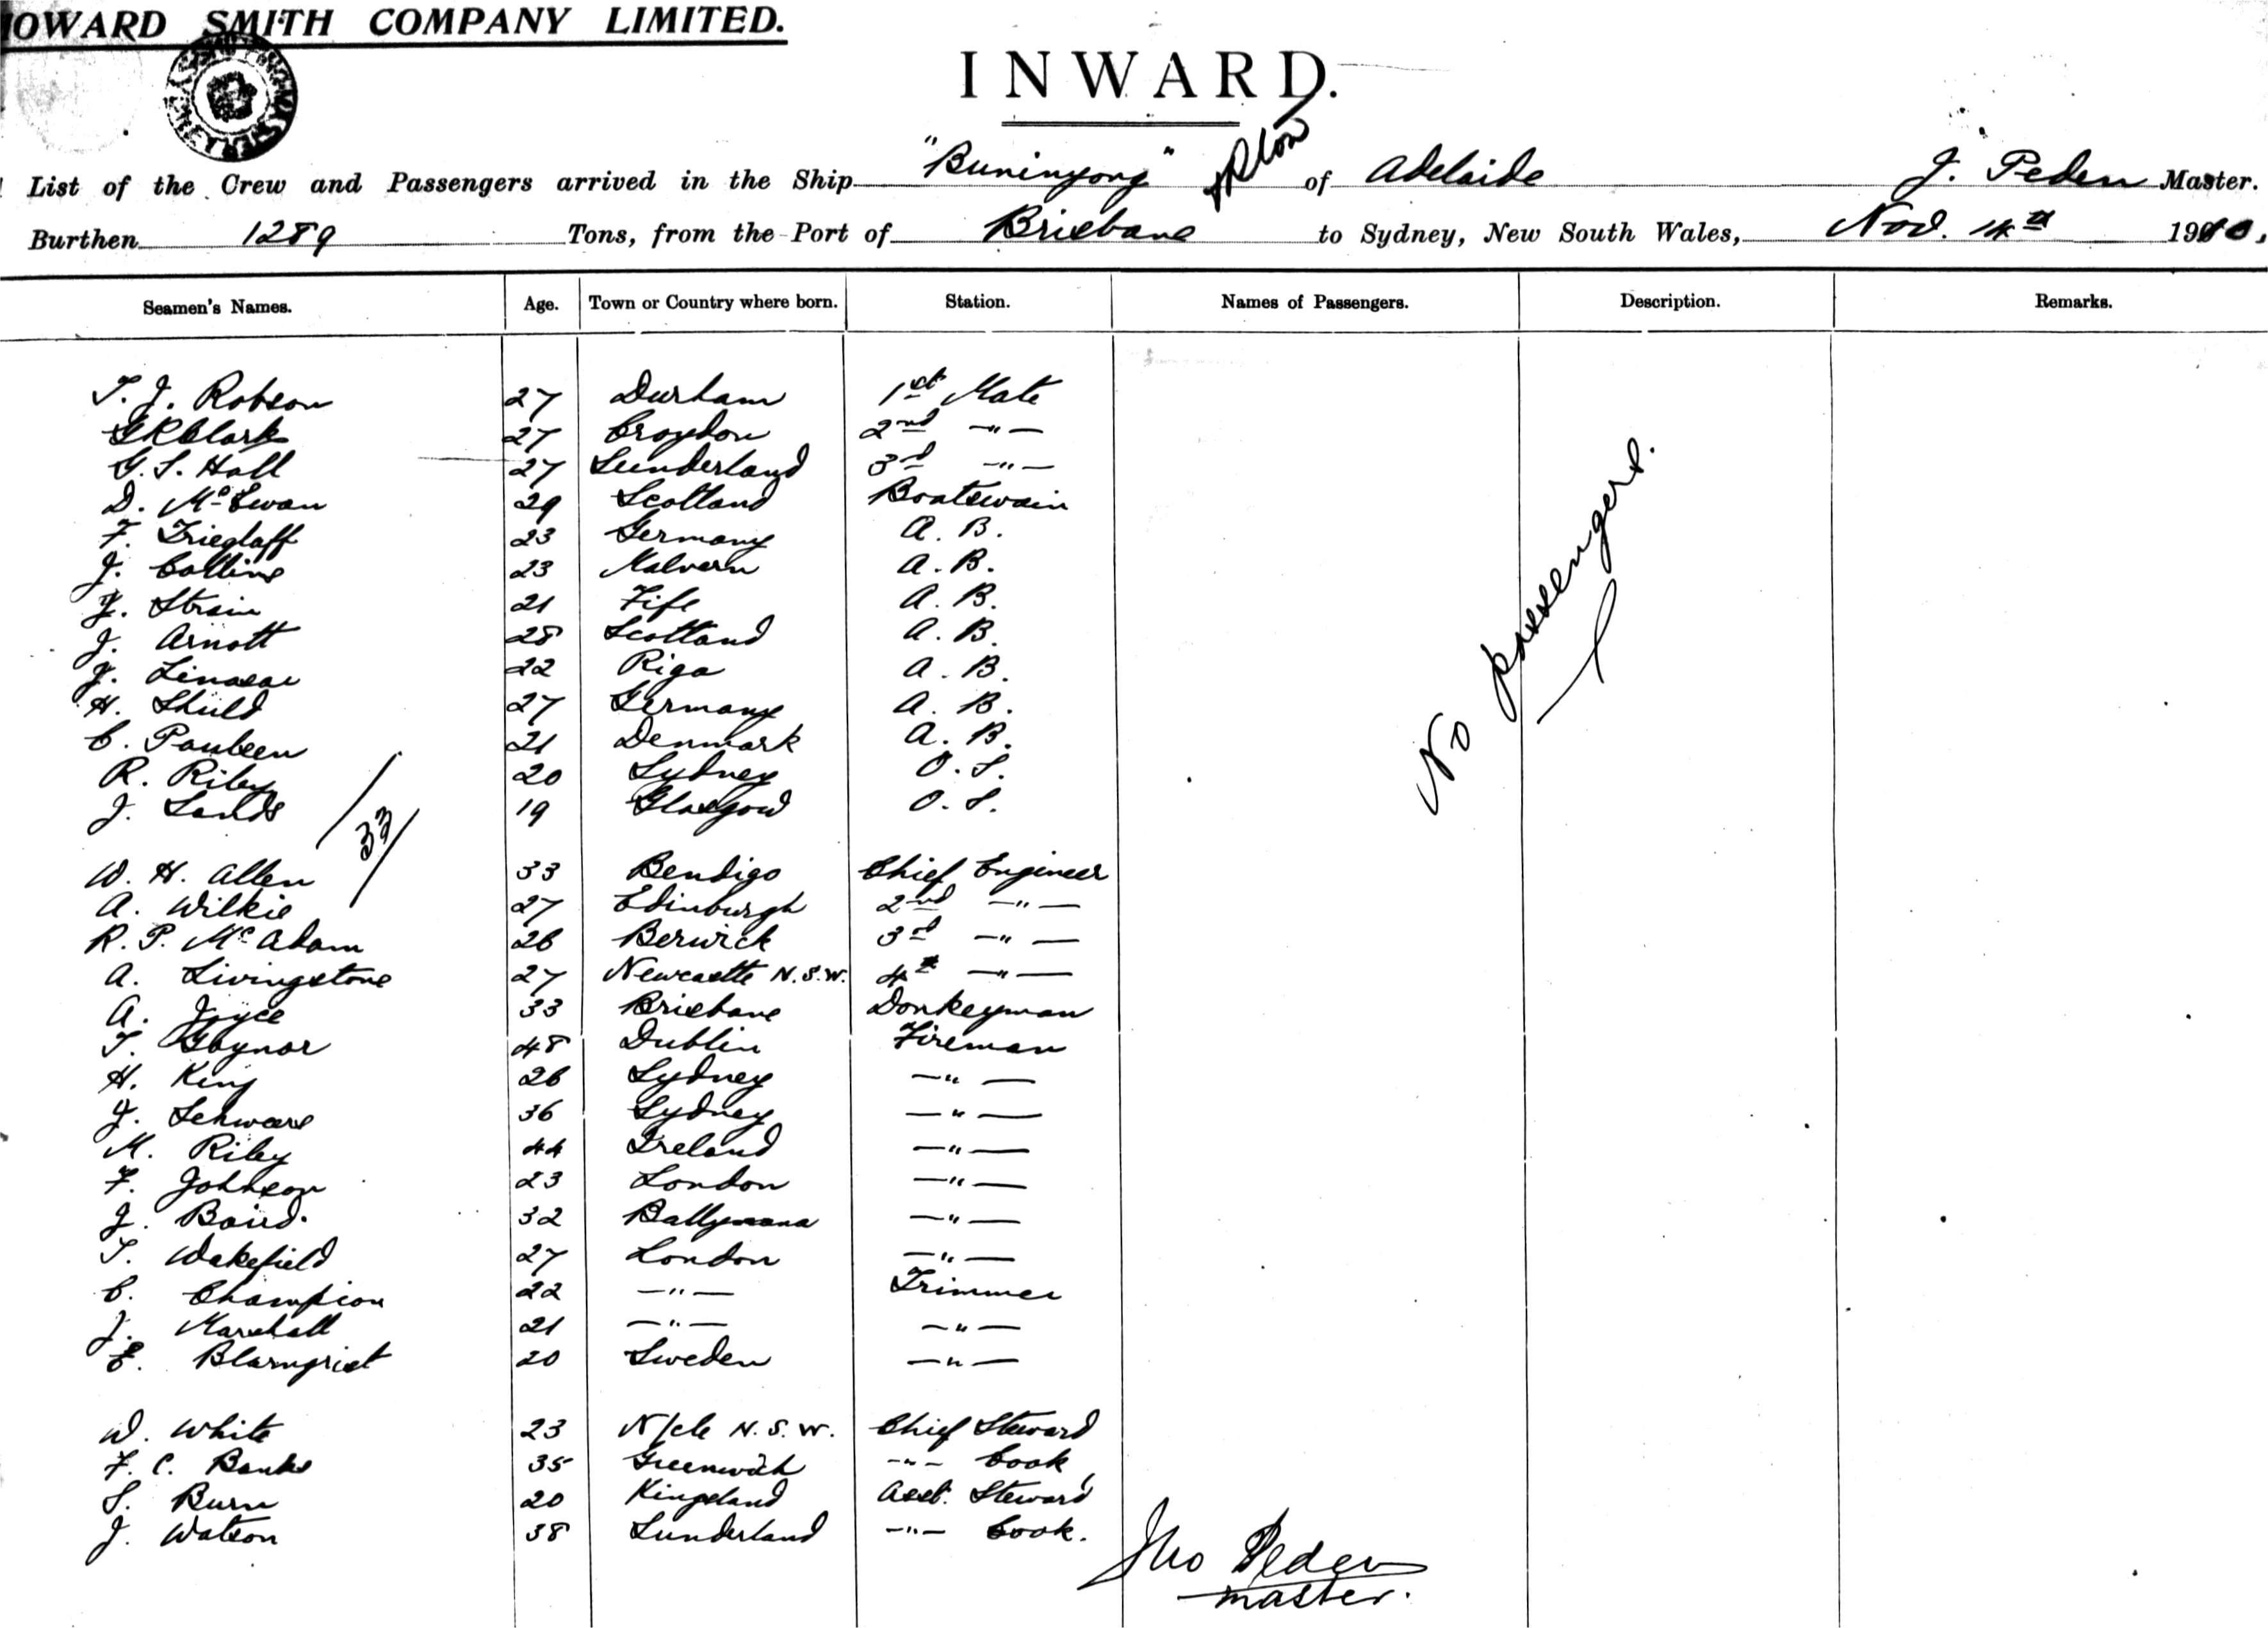 HOWARD SMITH COMPANY LIMITED.
INWARD.
List of the Crew and Passengers arrived in the Ship "Buninyong" of Adelaide J. Peden Master.
Burthen 1289 Tons, from the Port of Brisbane to Sydney, New South Wales, Nov. 14th 1900.
Seamen's Names. Age. Town or Country where born. Station. Names of Passengers. Description. Remarks.
T. J. Robson 27 Durham 1st Mate
G R Clark 27 Croydon 2nd —"—
G. S. Hall 27 Sunderland 3d —"—
D. McEwan 29 Scotland Boatswain
F. Trieglaff 23 Germany A. B.
J. Collins 23 Malvern A. B.
J. Strain 21 Fife A. B.
J. Arnott 28 Scotland A. B.
J. 22 Riga A. B.
H. Shuld 27 Germany A. B.
C. Paulsen 21 Denmark A. B.
R. Riley 20 Sydney O. S.
J. Sands 19 Glasgow O. S.
33
W. H. Allen 33 Bendigo Chief Engineer
A. Wilkie 27 Edinburgh 2nd —"—
R. P. McAdam 26 Berwick 3d —"—
A. Livingstone 27 Newcastle N.S.W. 4th —"—
A. Joyce 33 Brisbane Donkeyman
T. Gaynor 48 Dublin Fireman
H. King 26 Sydney —"—
J. Schwarz 36 Sydney —"—
M. Riley 44 Ireland —"—
F. Johnson 23 London —"—
J. Baird. 32 Ballymana —"—
T. Wakefield 27 London —"—
C. Champion 22 —"— Trimmer
J. Marshall 21 —"— —"—
E. Blamqrist 20 Sweden —"—
W. White 23 N/cle N. S. W. Chief Steward
F. C. Banks 35 Greenwich —"— Cook
S. Burn 20 Kingsland Asst. Steward
J. Watson 38 Sunderland —"— Cook.
No passengers.
Jno Peden
master.